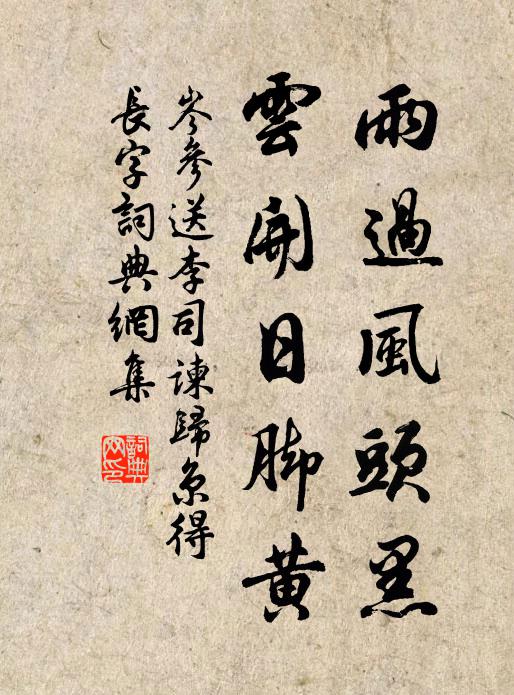 雨過風頭黑
雲開日腳黃
岑參送李司諫歸京得
長字詞典網集
詞典網印